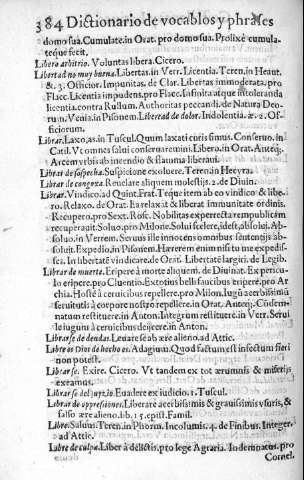 384 Dictionario de vocablos y phrases
domo sua. Cumulate. in Orat. pro domo sua. Prolixè cumula-
teque fecit.
Libera arbitrio. Voluntas libera. Cicero.
Libertad no muy buena. Libertas. in Verr. Licentia. Teren. in Heaut.
&. 3. Officior. Impunitas. de Clar. Libertas immoderata. pro
Flacc. Licentia impudens. pro Flacc. Infinita atque intoleranda
licentia. contra Rullum. Authoritas peccandi. de Natura Deo-
rum. Venia. in Pisonem. Libertad de dolor. Indolentia. æ. 2. Of-
ficiorum.
Librar. Laxo, as. in Tuscul. Quum laxati curis sumus. Conseruo. in
Catil. Vt omnes salui conseruaremini. Libero. in Orat. Anteq;.
Arcem vrbis ab incendio & flamma liberaui.
Librar de sospecha. Suspicione exoluere. Teren. in Hecyra.
Librar de congoxa. Reuelare aliquem molestijs. 2. de Diuin.
Librar. Vindico, ad Quint. Frat. Teque item ab eo vindico & libe-
ro. Relaxo. de Orat. Ea relaxat & liberat immunitate ordinis.
Recupero. pro Sext. Rosc. Nobilitas experrecta rempublicam
recuperauit. Soluo. pro Milone. Solui scelere, idest, absolui. Ab-
soluo. in Verrem. Seruus ille innocens omnibus sententijs ab-
soluit. Expedio. in Pisonem. Haererem enim nisi tu me expedis-
ses. In libertatẽ vindicare. de Orat. Libertatẽ largiri. de Legib.
Librar de muerte. Eripere à morte aliquem. de Diuinat. Ex pericu-
lo eripere. pro Cluentio. Ex totius belli faucibus eripere. pro Ar-
chia. Hostẽ à ceruicibus repellere. pro Milon. Iugũ acerbissimũ
seruitutis à corpore nostro repellere. in Orat. Antonij. Cõdem-
natum restituere. in Anton. Integrum restituere. in Verr. Serui
le iugum à ceruicibus deijcere. in Anton.
Librarse de deudas. Leuare se ab ære alieno. ad Attic.
Libre os Dios de hecho es. Adagium. Quod factum est infectum fieri
non potest.
Librarse. Exire. Cicero. Vt tandem ex tot ærumnis & miserijs
exeamus.
Librarse del juyzio. Euadere ex iudicio. 1. Tuscul.
Librar de oppresiones. Liberare acerbissimis & grauissimis vsuris, &
falso ære alieno. lib. 15. epist. Famil.
Libre. Saluus. Teren. in Phorm. Incolumis. 4. de Finibus. Integer.
ad Attic.
Libre de culpa. Liber à delictis. pro lege Agraria. Indemnatus. pro
Cornel.